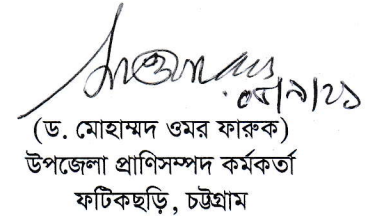 ০৮/৯/২১
(ড. মোহাম্মদ ওমর ফারুক)
উপজেলা প্রাণিসম্পদ কর্মকর্তা
ফটিকছড়ি, চট্টগ্রাম